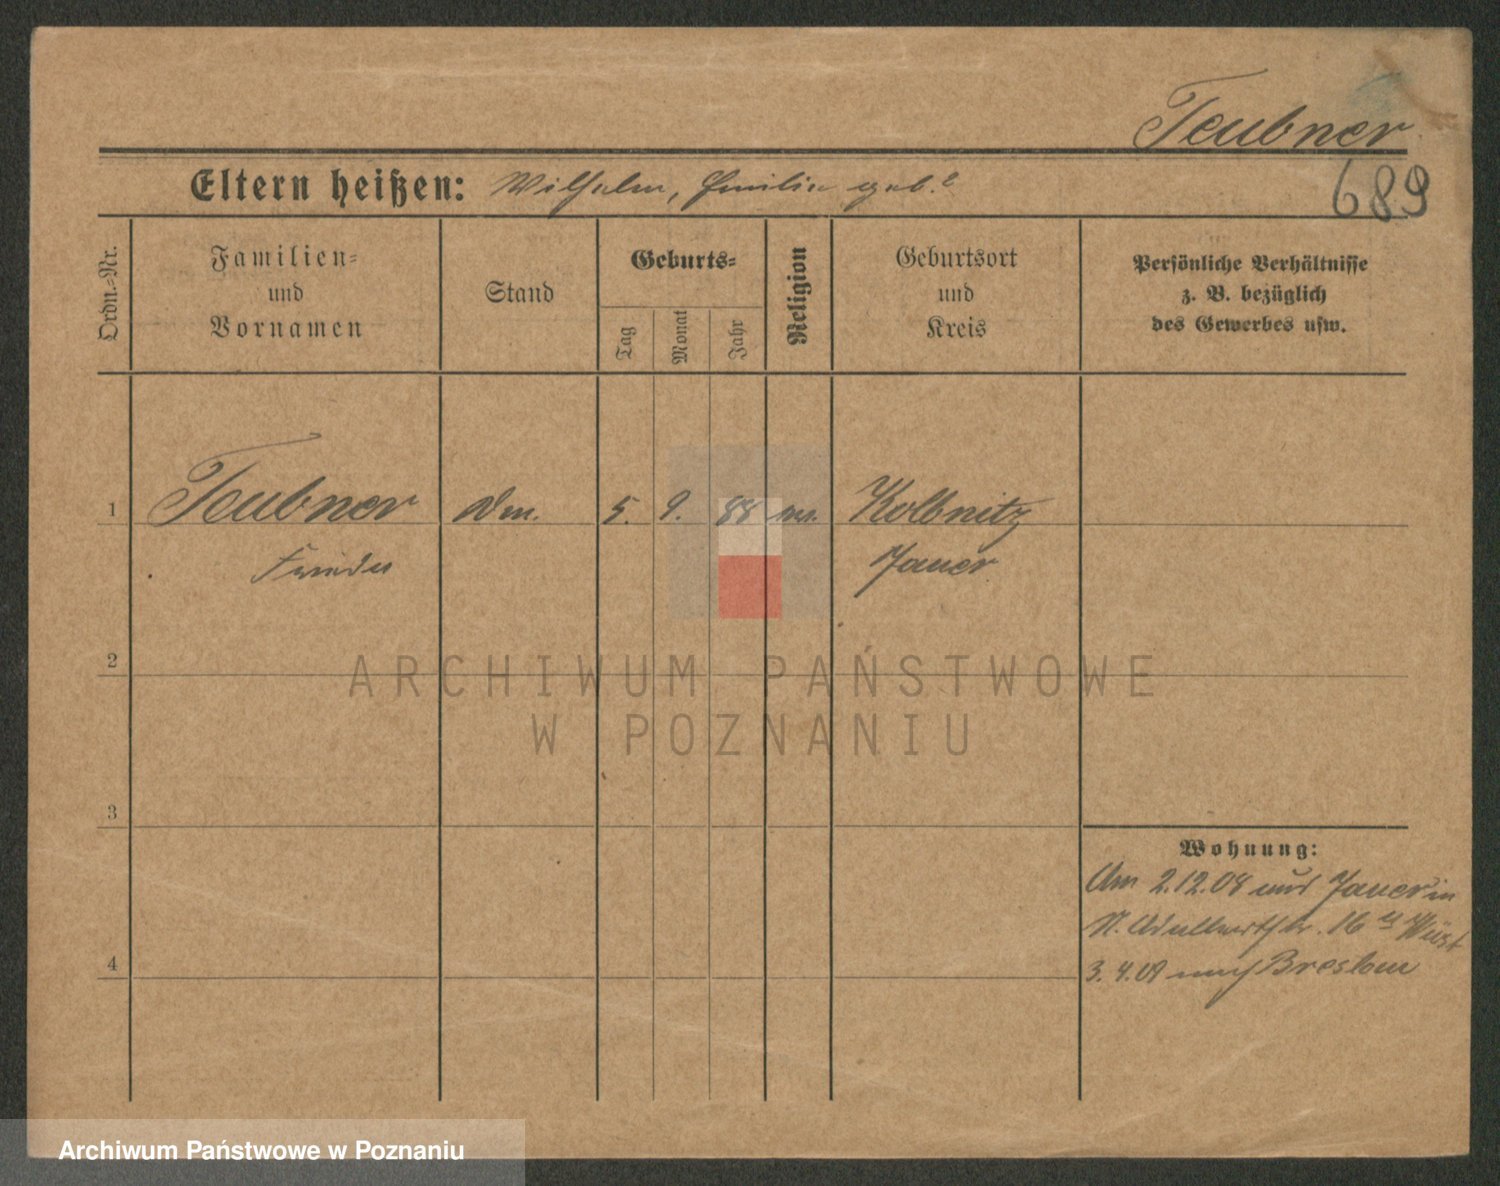 Teubner
689
Eltern heißen: Wilhelm, Emilie geb. ?
Ordn.-Nr.
Familien-
und
Vornamen
Stand
Geburts-
Tag
Monat
Jahr
Religion
Geburtsort
und
Kreis
Persönliche Verhältnisse
z. B. bezüglich
des Gewerbes usw.
1 Teubner 5. 9. 88 Kolbnitz
Frieda Jauer
2
3
4
Wohnung:
Am 2.12.08 aus Jauer in
16
3.4.09 nach Breslau
ARCHIWUM PAŃSTWOWE
W POZNANIU
Archiwum Państwowe w Poznaniu